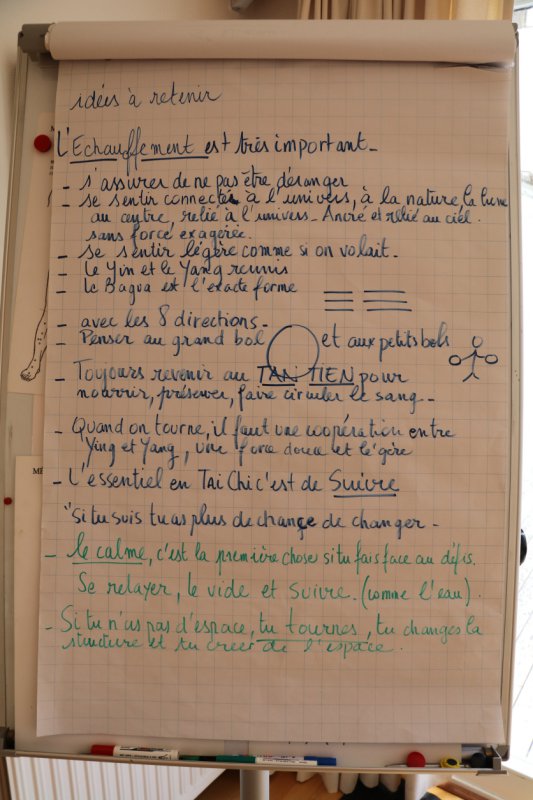 idées à retenir
L'Echauffement est très important_
_ s'assurer de ne pas être déranger
_ se sentir connecter à l'univers, à la nature, la lune
au centre, relié à l'univers_ Ancré et relié au ciel.
sans force exagérée.
_ se sentir légère comme si on volait_
_ Le Yin et le Yang reunis
_ Le Bagua est l'exacte forme
_ avec les 8 directions_
_ Penser au grand bol et aux petits bols
_ Toujours revenir au TAN TIEN pour
nourrir, préserver, faire circuler le sang_
_ Quand on tourne, il faut une coopération entre
Ying et Yang, une force douce et légère
_ L'essentiel en Tai Chi c'est de Suivre
"Si tu suis tu as plus de chance de changer_
_ le calme, c'est la première chose si tu fais face au défis.
Se relayer, le vide et suivre. (comme l'eau).
_ Si tu n'as pas d'espace, tu tournes, tu changes la
structure et tu créer de l'espace.